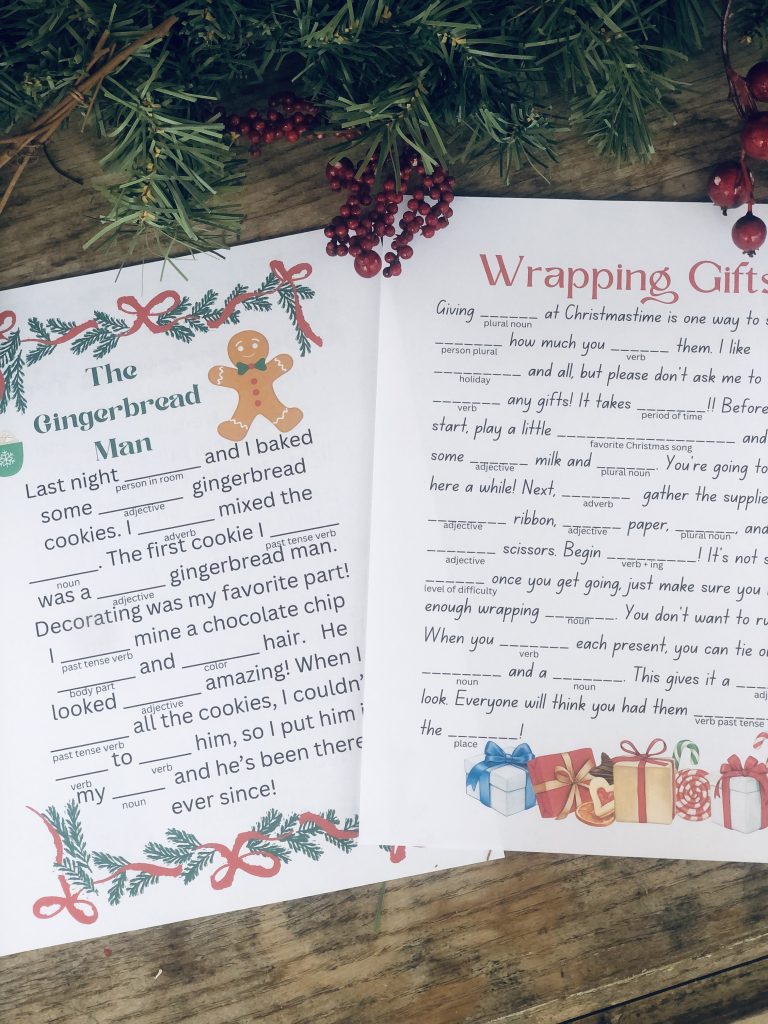 The
Gingerbread
Man
Last night ________ and I baked
person in room
some ________ gingerbread
adjective
cookies. I ________ mixed the
adverb
________. The first cookie I ________
noun
past tense verb
was a ________ gingerbread man.
adjective
Decorating was my favorite part!
I ________ mine a chocolate chip
past tense verb
________ and ________ hair. He
body part
color
looked ________ amazing! When I
adjective
________ all the cookies, I
past tense verb
_____ to _____ him, so I put him
verb
verb
my _____ and he's been there
noun
ever since!
Wrapping Gifts
Giving ______ at Christmastime is one way to
plural noun
_______ how much you ______ them. I like
person plural
verb
_________ and all, but please don't ask me to
holiday
_______ any gifts! It takes _______!! Before
verb
period of time
start, play a little __________________ and
favorite Christmas song
some _______ milk and ______. You're going to
adjective
plural noun
here a while! Next, _______ gather the supplies
adverb
________ ribbon, ______ paper, ______, and
adjective
adjective
plural noun
_______ scissors. Begin _________! It's not
adjective
verb + ing
______ once you get going, just make sure you
level of difficulty
enough wrapping _______. You don't want to
noun
When you _______ each present, you can tie
verb
________ and a _______. This gives it a
noun
noun
look. Everyone will think you had them ________
verb past tense
the _______!
place